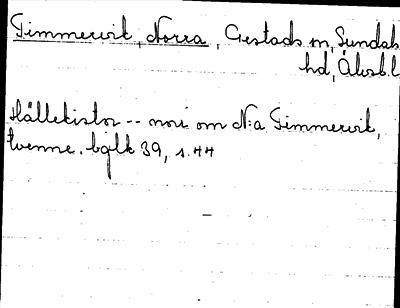 Timmervik, Norra, Gestads sn, Sundals
hd, Älvsb. l
Hällekistor -- norr om N:a Timmervik,
tvenne. bglk 39, s. 44